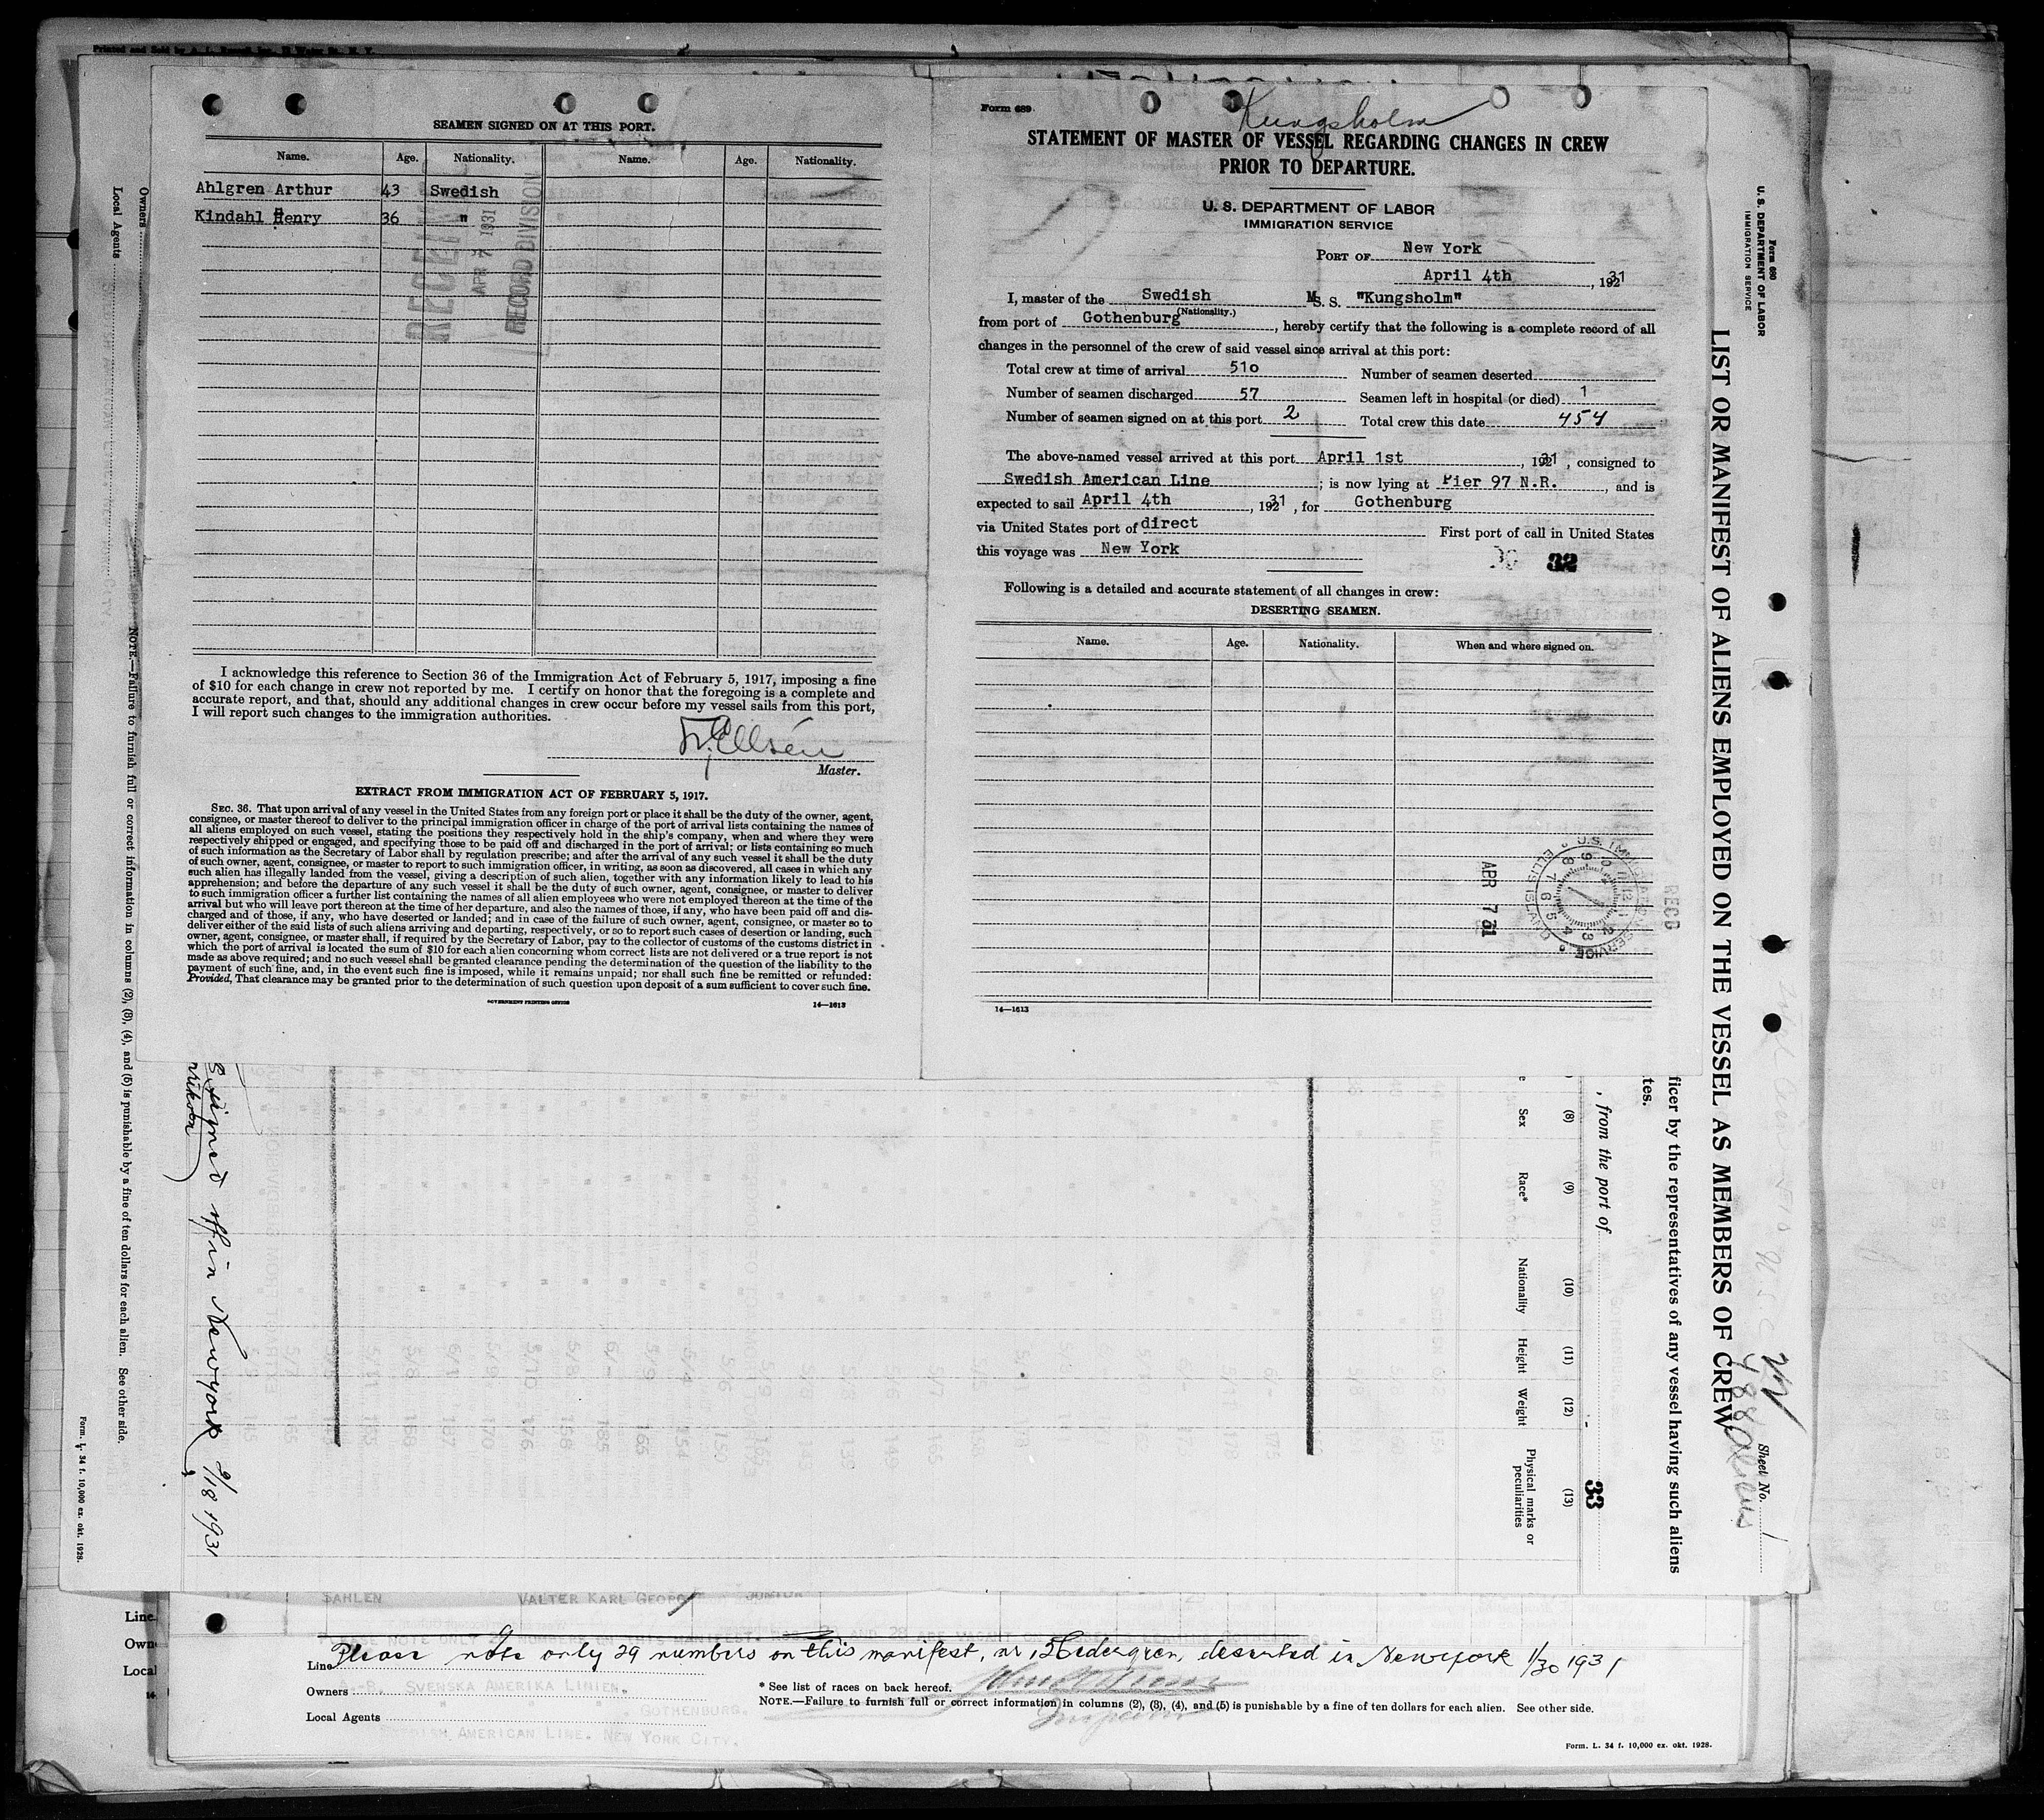 Printed and Sold by
SEAMEN SIGNED ON AT THIS PORT.
Name. Age. Nationality. Name. Age. Nationality.
Ahlgren Arthur 43 Swedish
Kindahl Henry 36 "
RECEIVED
APR 7 1931
RECORD DIVISION
I acknowledge this reference to Section 36 of the Immigration Act of February 5, 1917, imposing a fine
of $10 for each change in crew not reported by me. I certify on honor that the foregoing is a complete and
accurate report, and that, should any additional changes in crew occur before my vessel sails from this port,
I will report such changes to the immigration authorities.
Ellsén
Master.
EXTRACT FROM IMMIGRATION ACT OF FEBRUARY 5, 1917.
SEC. 36. That upon arrival of any vessel in the United States from any foreign port or place it shall be the duty of the owner, agent,
consignee, or master thereof to deliver to the principal immigration officer in charge of the port of arrival lists containing the names of
all aliens employed on such vessel, stating the positions they respectively hold in the ship's company, when and where they were
respectively shipped or engaged, and specifying those to be paid off and discharged in the port of arrival; or lists containing so much
of such information as the Secretary of Labor shall by regulation prescribe; and after the arrival of any such vessel it shall be the duty
of such owner, agent, consignee, or master to report to such immigration officer, in writing, as soon as discovered, all cases in which any
such alien has illegally landed from the vessel, giving a description of such alien, together with any information likely to lead to his
apprehension; and before the departure of any such vessel it shall be the duty of such owner, agent, consignee, or master to deliver
to such immigration officer a further list containing the names of all alien employees who were not employed thereon at the time of the
arrival but who will leave port thereon at the time of her departure, and also the names of those, if any, who have been paid off and dis-
charged and of those, if any, who have deserted or landed; and in case of the failure of such owner, agent, consignee, or master so to
deliver either of the said lists of such aliens arriving and departing, respectively, or so to report such cases of desertion or landing, such
owner, agent, consignee, or master shall, if required by the Secretary of Labor, pay to the collector of customs of the customs district in
which the port of arrival is located the sum of $10 for each alien concerning whom correct lists are not delivered or a true report is not
made as above required; and no such vessel shall be granted clearance pending the determination of the question of the liability to the
payment of such fine, and, in the event such fine is imposed, while it remains unpaid; nor shall such fine be remitted or refunded:
Provided, That clearance may be granted prior to the determination of such question upon deposit of a sum sufficient to cover such fine.
GOVERNMENT PRINTING OFFICE 14—1613
Form 689
Kungsholm
STATEMENT OF MASTER OF VESSEL REGARDING CHANGES IN CREW
PRIOR TO DEPARTURE.
U. S. DEPARTMENT OF LABOR
IMMIGRATION SERVICE
PORT OF New York
April 4th, 1931
I, master of the Swedish M.S. S. "Kungsholm"
(Nationality.)
from port of Gothenburg, hereby certify that the following is a complete record of all
changes in the personnel of the crew of said vessel since arrival at this port:
Total crew at time of arrival 510 Number of seamen deserted
Number of seamen discharged 57 Seamen left in hospital (or died) 1
Number of seamen signed on at this port 2 Total crew this date 454
The above-named vessel arrived at this port April 1st, 1931, consigned to
Swedish American Line; is now lying at Pier 97 N.R., and is
expected to sail April 4th, 1931, for Gothenburg
via United States port of direct First port of call in United States
this voyage was New York
32
Following is a detailed and accurate statement of all changes in crew:
DESERTING SEAMEN.
Name. Age. Nationality. When and where signed on.
APR 7 31
U.S. IMMIGRATION SERVICE ELLIS ISLAND
RECD
14—1613
Form 680
U. S. DEPARTMENT OF LABOR
IMMIGRATION SERVICE
LIST OR MANIFEST OF ALIENS EMPLOYED ON THE VESSEL AS MEMBERS OF CREW
Sheet No. 1
488 aliens
ficer by the representatives of any vessel having such aliens
tes.
, from the port of
33
(8) (9) (10) (11) (12) (13)
Sex Race* Nationality Height Weight Physical marks or peculiarities
Owners
Local Agents
NOTE.—Failure to furnish full or correct information in columns (2), (3), (4), and (5) is punishable by a fine of ten dollars for each alien. See other side.
Form. L. 34 f. 10,000 ex. okt. 1928.
signed off in Newyork 2/18 1931
SAHLEN VALTER KARL GEORG JUNIOR
Please note only 29 numbers on this manifest, nr 1, Hedergren, deserted in Newyork 1/30 1931
Line
Owners SVENSKA AMERIKA LINIEN.
GOTHENBURG.
Local Agents
SWEDISH AMERICAN LINE. NEW YORK CITY.
* See list of races on back hereof.
NOTE.—Failure to furnish full or correct information in columns (2), (3), (4), and (5) is punishable by a fine of ten dollars for each alien. See other side.
Inspector
Form. L. 34 f. 10,000 ex. okt. 1928.
Line
Own
Local